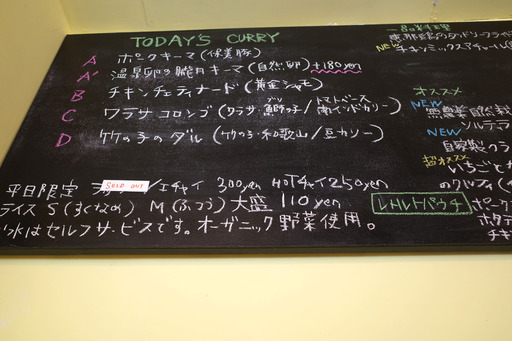 TODAY'S CURRY
A ポークキーマ(保美豚)
A' 温泉卵の朧月キーマ(自然卵)+180yen
B チキンチェティナード(黄金シャモ)
C ワラサコロンゴ(ワラサ・鰤の子/トマトベース南インドカリー)
ブリ
D 竹の子のダル(竹の子・和歌山/豆カリー)
平日限定 SOLD OUT /エチャイ 300yen HOTチャイ250yen
ライス S(すくなめ) M(ふつう) 大盛 110yen
水はセルフサービスです。オーガニック野菜使用。
一品料理
NEW チキンミックスアチャール
オススメ
NEW
NEW ソルティ
自家製クラ
超オススメ
いちごと
のクルフィ
レトルトパウチ ポーク
ホタテ
チキ